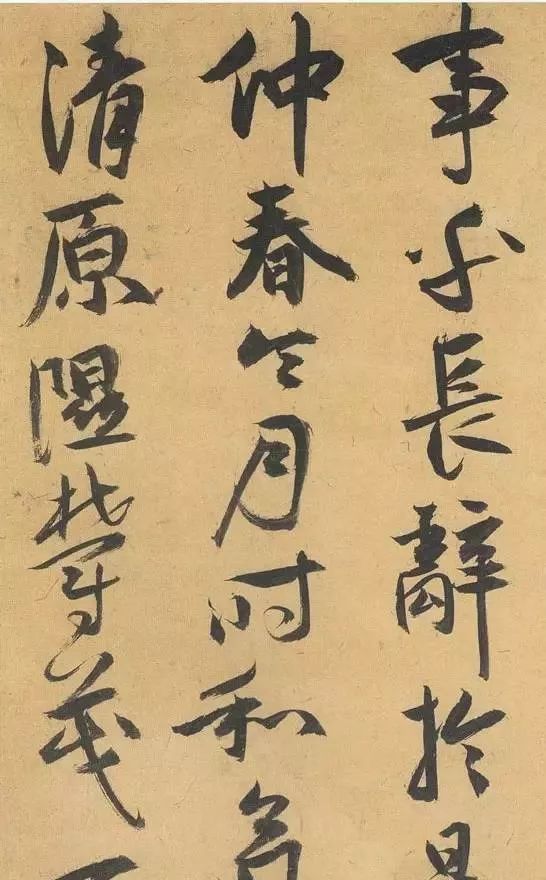 事乎長辭於
仲春令月時和
清原隰鬱茂